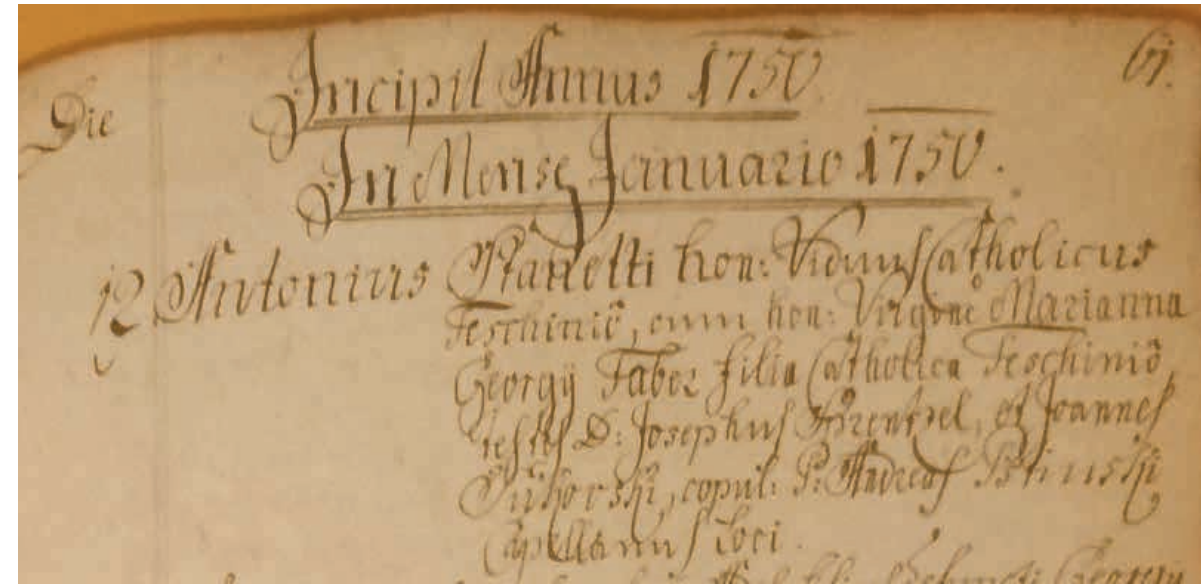 61.
Die Incipit Annus 1750.
In Mense Januario 1750.
12. Antonius hon: Viduus Catholicus
Teschiniẽ, cum hon: Virgine Marianna
Georgÿ Faber filia Catholica Teschiniẽ,
testes D: Josephus et Joannes
copul: P: Andreas
Capellanus loci.